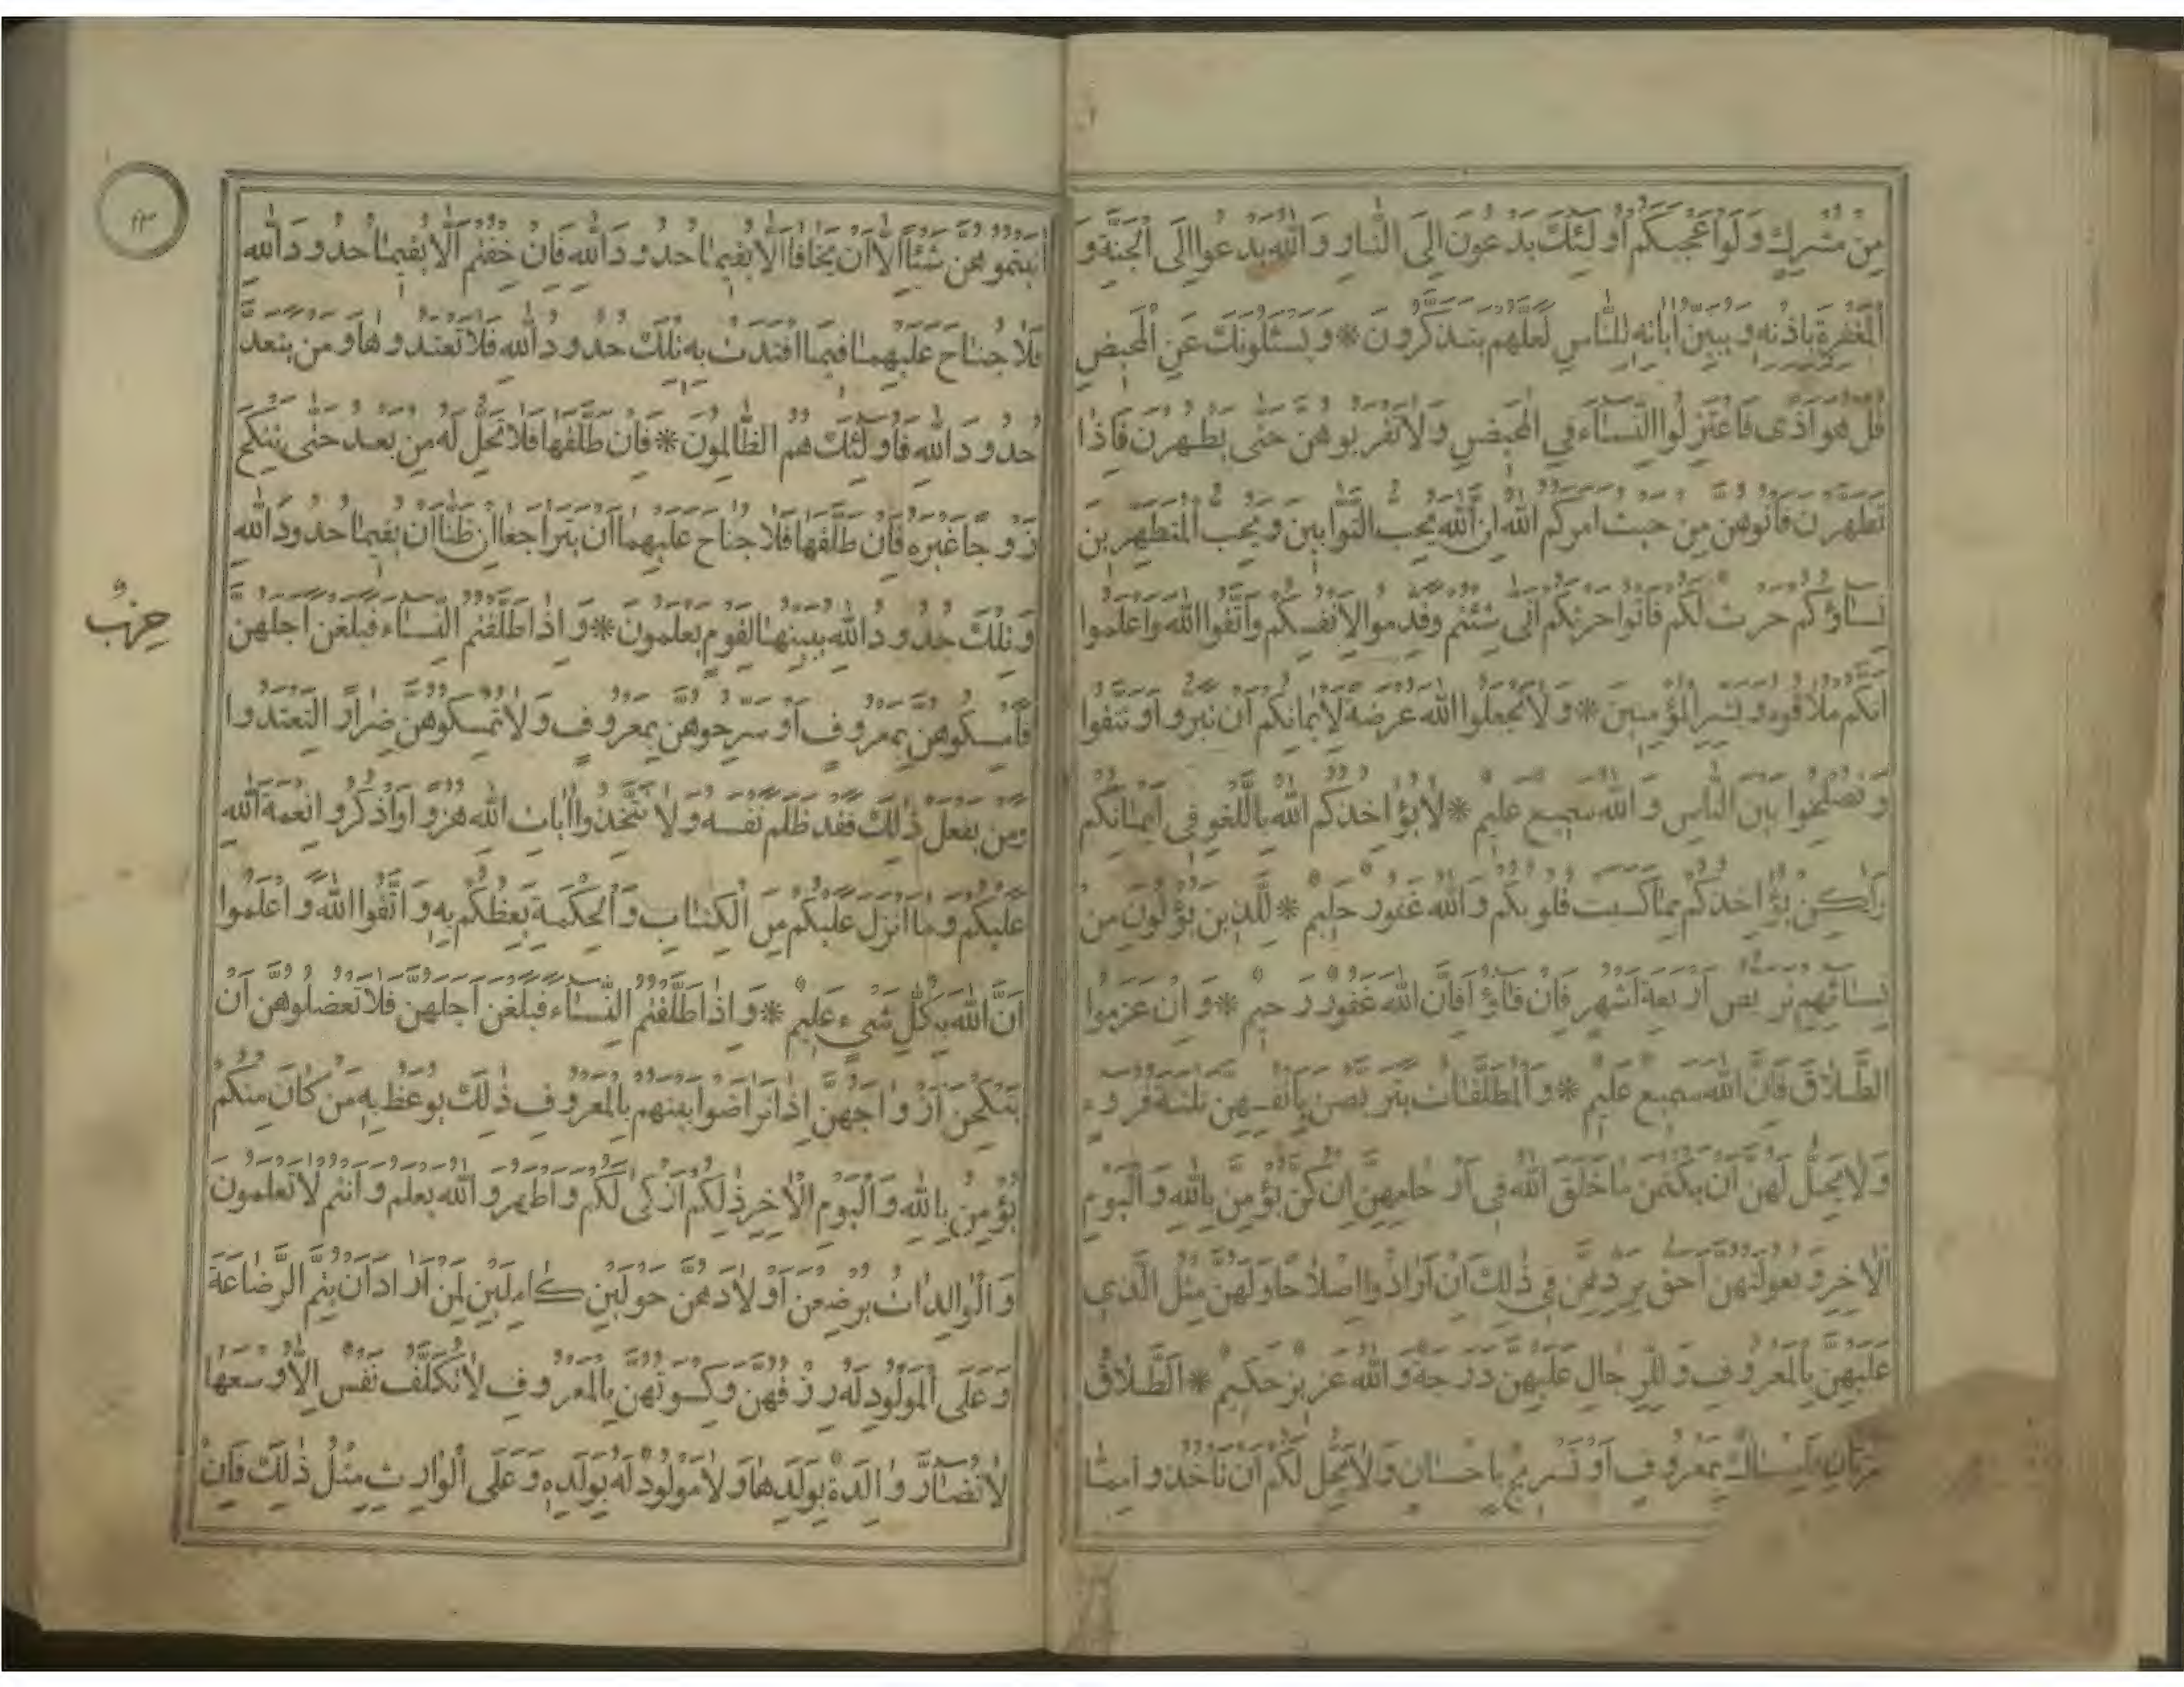 مِن مشركٍ ولو اعجبكم اولئك يدعون الى النار والله يدعوا الى الجنة و
المغفرة باذنه ويبين اياته للناس لعلهم يتذكرون * ويسئلونك عن المحيض
قل هو اذى فاعتزلوا النساء في المحيض ولا تقربوهن حتى يطهرن فاذا
تطهرن فاتوهن من حيث امركم الله ان الله يحب التوابين ويحب المتطهرين
نساؤكم حرث لكم فاتوا حرثكم انى شئتم وقدموا لانفسكم واتقوا الله واعلموا
انكم ملاقوه وبشر المؤمنين * ولا تجعلوا الله عرضة لايمانكم ان تبروا وتتقوا
وتصلحوا بين الناس والله سميع عليم * لا يؤاخذكم الله باللغو في ايمانكم
ولكن يؤاخذكم بما كسبت قلوبكم والله غفور حليم * للذين يؤلون من
نسائهم تربص اربعة اشهر فان فاؤا فان الله غفور رحيم * وان عزموا
الطلاق فان الله سميع عليم * والمطلقات يتربصن بانفسهن ثلثة قروء
ولا يحل لهن ان يكتمن ما خلق الله في ارحامهن ان كن يؤمن بالله واليوم
الاخر وبعولتهن احق بردهن في ذلك ان ارادوا اصلاحا ولهن مثل الذي
عليهن بالمعروف وللرجال عليهن درجة والله عزيز حكيم * الطلاق
مرتان فامساك بمعروف او تسريح باحسان ولا يحل لكم ان تاخذوا مما
اتيتموهن شيئا الا ان يخافا الا يقيما حدود الله فان خفتم الا يقيما حدود الله
فلا جناح عليهما فيما افتدت به تلك حدود الله فلا تعتدوها ومن يتعد
حدود الله فاولئك هم الظالمون * فان طلقها فلا تحل له من بعد حتى ينكح
زوجا غيره فان طلقها فلا جناح عليهما ان يتراجعا ان ظنا ان يقيما حدود الله
وتلك حدود الله يبينها لقوم يعلمون * واذا طلقتم النساء فبلغن اجلهن
حزب
فامسكوهن بمعروف او سرحوهن بمعروف ولا تمسكوهن ضرارا لتعتدوا
ومن يفعل ذلك فقد ظلم نفسه ولا تتخذوا ايات الله هزوا واذكروا نعمة الله
عليكم وما انزل عليكم من الكتاب والحكمة يعظكم به واتقوا الله واعلموا
ان الله بكل شيء عليم * واذا طلقتم النساء فبلغن اجلهن فلا تعضلوهن ان
ينكحن ازواجهن اذا تراضوا بينهم بالمعروف ذلك يوعظ به من كان منكم
يؤمن بالله واليوم الاخر ذلكم ازكى لكم واطهر والله يعلم وانتم لا تعلمون
والوالدات يرضعن اولادهن حولين كاملين لمن اراد ان يتم الرضاعة
وعلى المولود له رزقهن وكسوتهن بالمعروف لا تكلف نفس الا وسعها
لا تضار والدة بولدها ولا مولود له بولده وعلى الوارث مثل ذلك فان